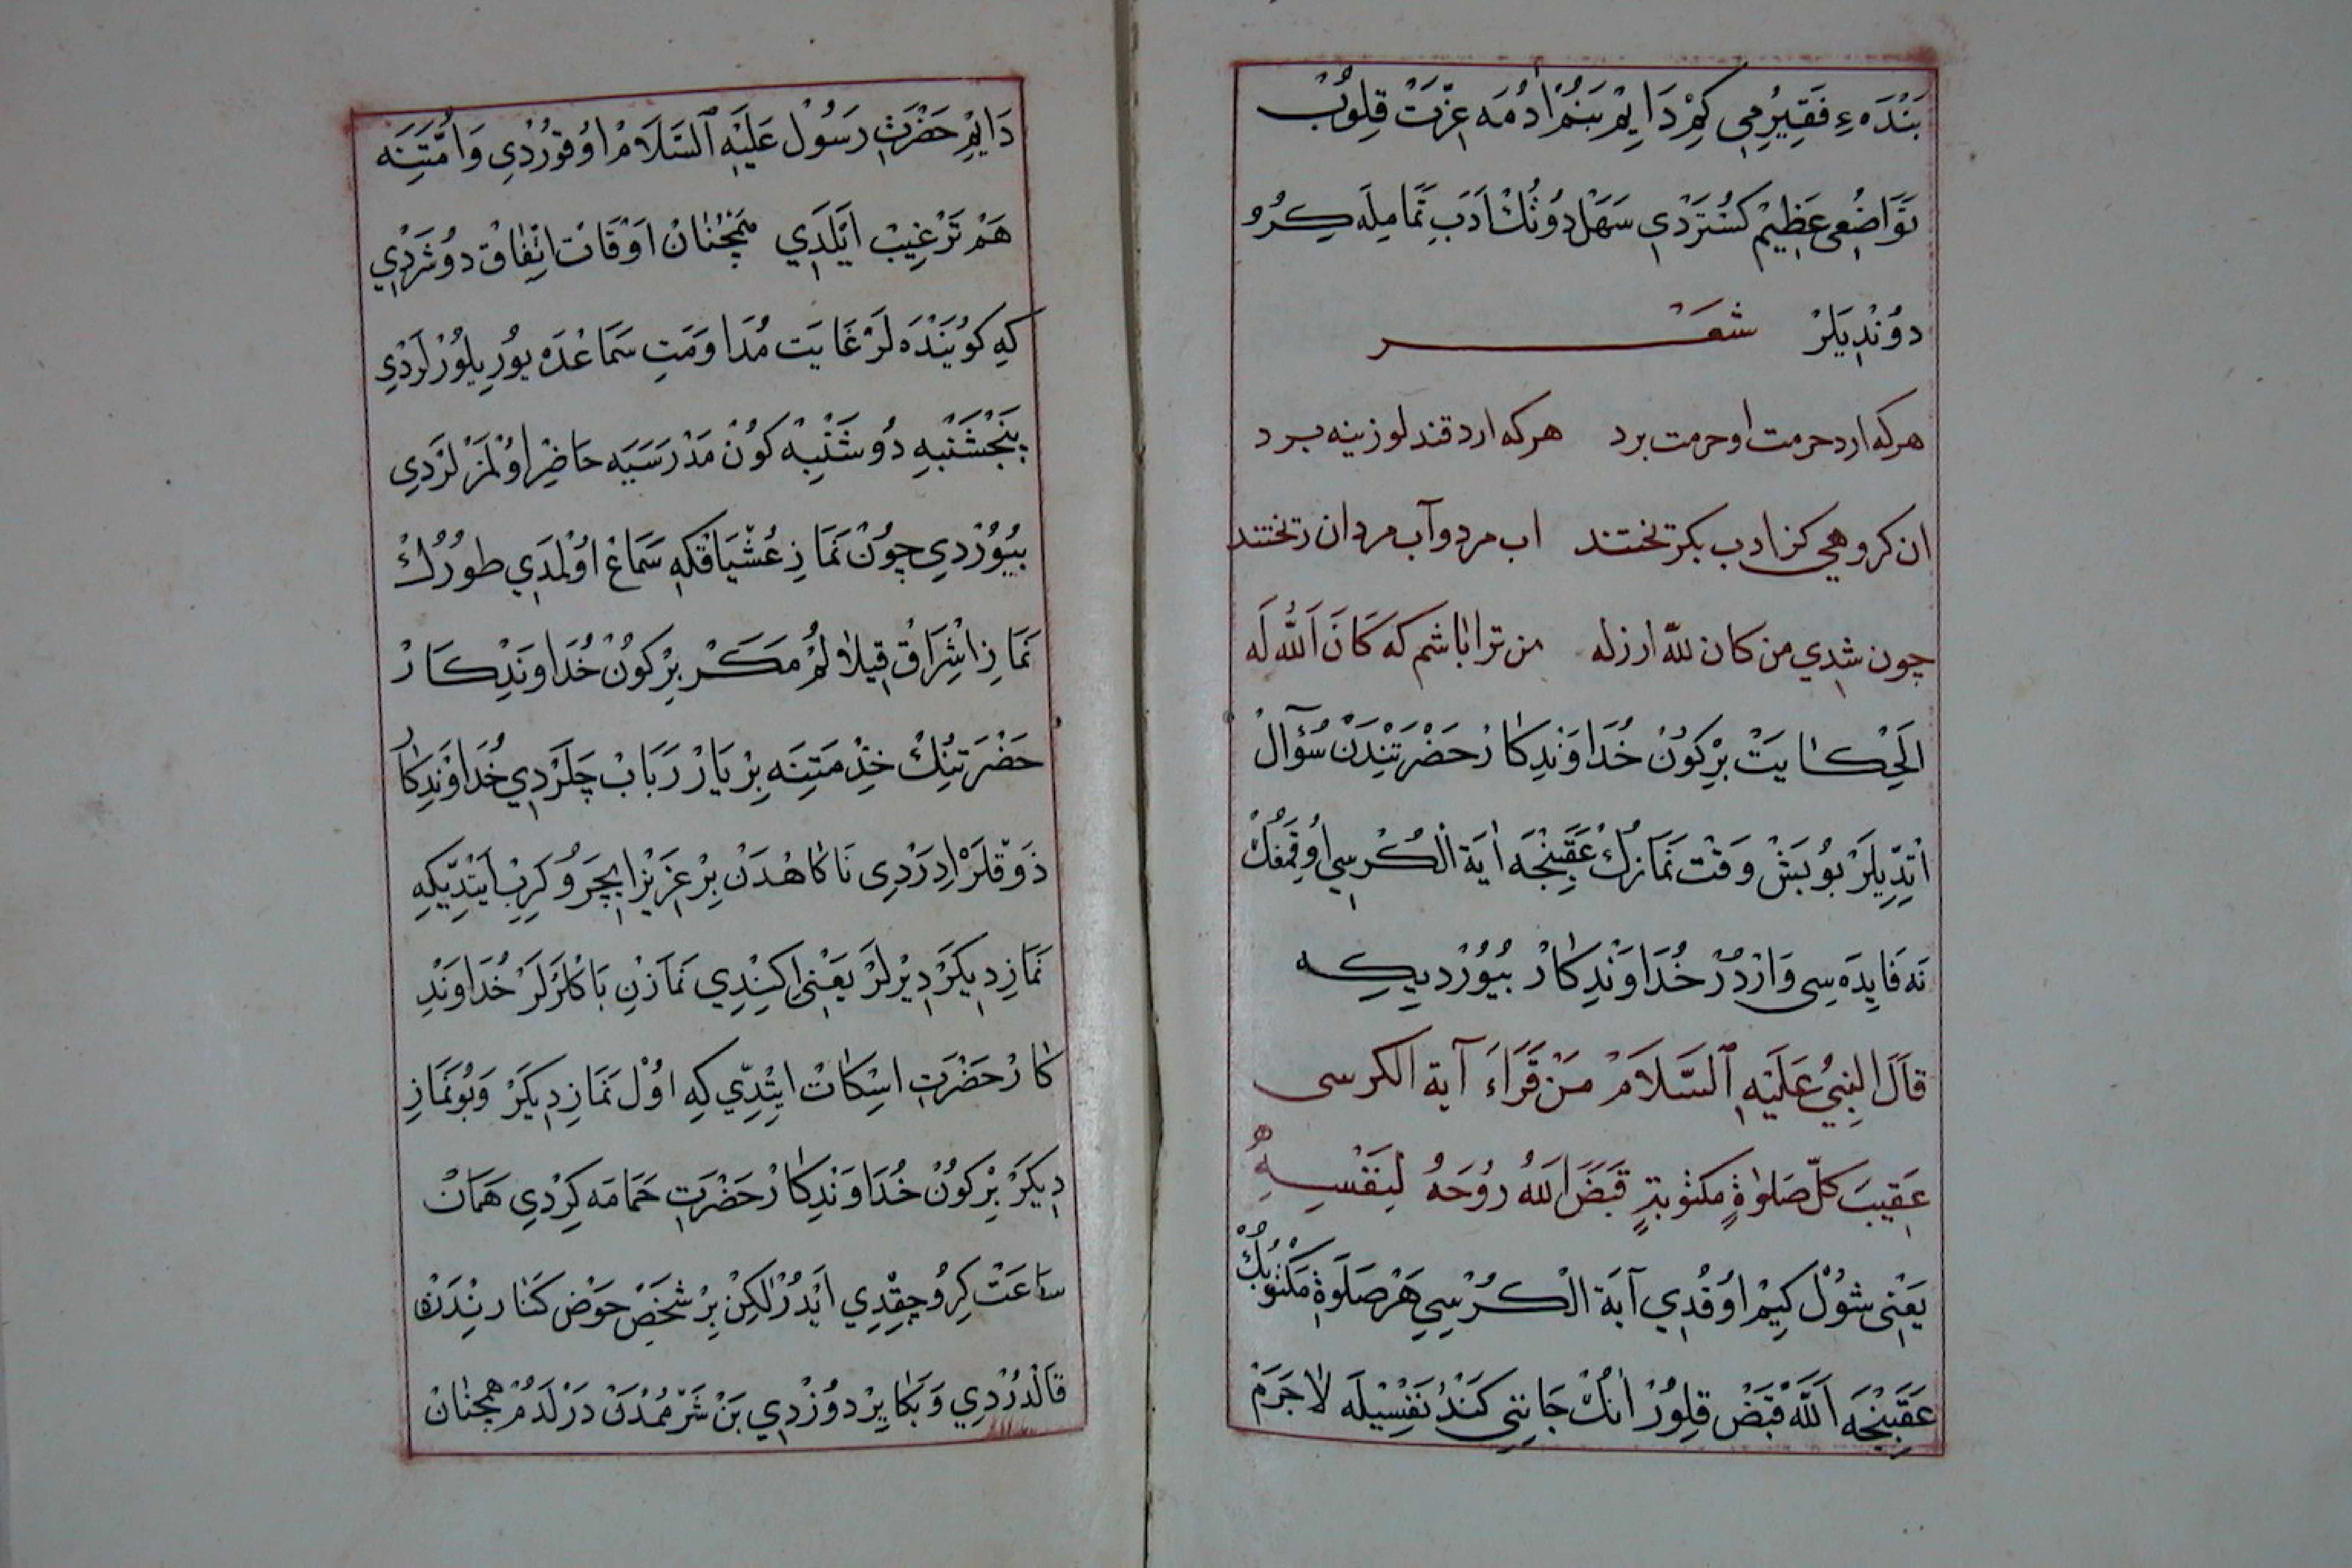 بَنْدَهءِ فَقِيرُمِي كِمْ دَايِمْ بَنُمْ اٰدُمَه عِزَّتْ قِلُوبْ
تَوَاضُعِ عَظِيمْ كُسْتَرْدِي سَهْل دُوتُكْ اَدَبِ تَمَامِلَه كِرُو
دُونْدِيلَرْ شعَـــر
هركه ارد حرمت او حرمت برد هركه ارد قند لوزينه برد
ان كروهي كز ادب بكرتختند اب مردو آب مردان رتختند
چون شدي من كان لله ارزله من ترا باشم كه كَانَ اَللّٰه لَه
اَلْحِكَايَتْ بِرْ كُونْ خُدَاوَنْدِكَارْ حَضْرَتِنْدَنْ سُؤَآلْ
اتِدِّيلَرْ بُو بَشْ وَقْتْ نَمَازِكْ عَقِبِنْجَه اٰيَةَ الْكُرْسِي اُوقِمَغُكْ
نَه فَايِدَه سِي وَارْدُرْ خُدَاوَنْدِكَارْ بُيُورْدِيكِه
قَالَ النِبِيُّ عَلَيْهِ اَلسَّلاَمْ مَنْ قَرَاءَ آية الكرسى
عَقِيبَ كلِّ صَلوٰةٍ مكتوبَةٍ قَبَضَ اللهُ رُوحَهُ لِنَفْسِهِ
يَعْنِي شُولْ كِيمْ اوُقُدِي آيَةَ الْكُرْسِي هَرْ صَلَوةِ مَكْتُوبُكْ
عَقِبِنْجَه اَللّٰه قَبْضْ قِلُورْ اٰنُكْ جَانِنِي كَنْدُ نَفْسِيلَه لاٰجَرَمْ
دَايِمْ حَضْرَتِ رَسُول عَلَيْهِ اَلسَّلاَمْ اُوقُورْدِي وَاُمَّتِنَه
هَمْ تَرْغِيبْ اَيْلَدِي هَمْچُنَانْ اَوْقَاتْ اتِّفَاقْ دُوشَرْدِي
كِه كُويَنْدَه لَرْ غَايَتْ مُدَاوَمَتِ سَمَاعْدَه يُورِيلُورْلَرْدِي
پَنْجْشَنْبِه دُوشَنْبِه كُونْ مَدْرَسَيَه حَاضِرْ اُولْمَزْلَرْدِي
بُيُورْدِي چُونْ نَمَازِ عُشَّاقكِه سَمَاعْ اُولْمَدِي طُورُكْ
نَمَازِ اشِرَاقْ قِيلاٰلُمْ مَكَرْ بِرْ كُونْ خُدَاوَنْدِكَارْ
حَضْرَتِنُكْ خِذْمَتِنَه بِرْ يَارْ رَبَابْ چَلَرْدِي خُدَاوَنْدِكَارْ
ذَوْقلَرْ ادِرَرْدِي نَاكَاهْدَنْ بِرْ عَزِيزْ ايچَرُو كِرِبْ اَيْتِدِّيكِه
نَمَازِ دِيكَرْ دِيرْلَرْ يَعْنِي اِكِنْدِي نَمَازِنْ بَاكْلَرْلَرْ خُدَاوَنْدِ
كَارْ حَضْرَتِ اسِكَاتْ ايتِدِّي كِه اُولْ نَمَازِ دِيكَرْ وَبُو نَمَازِ
دِيكَرْ بِرْ كُونْ خُدَاوَنْدِكَارْ حَضْرَتِ حَمَامَه كِرْدِي هَمَانْ
سَاعَتْ كِرُو چِقْدِي اَيْدُرْلَكِنْ بِرْ شَخَصْ حَوْض كَنَارِنْدَنْ
قَالْدُرْدِي وَبَكَا يِرْ دُوزْدِي بَنْ شَرْمُمْدَنْ دَرْلَدُمْ هَمْچُنَانْ